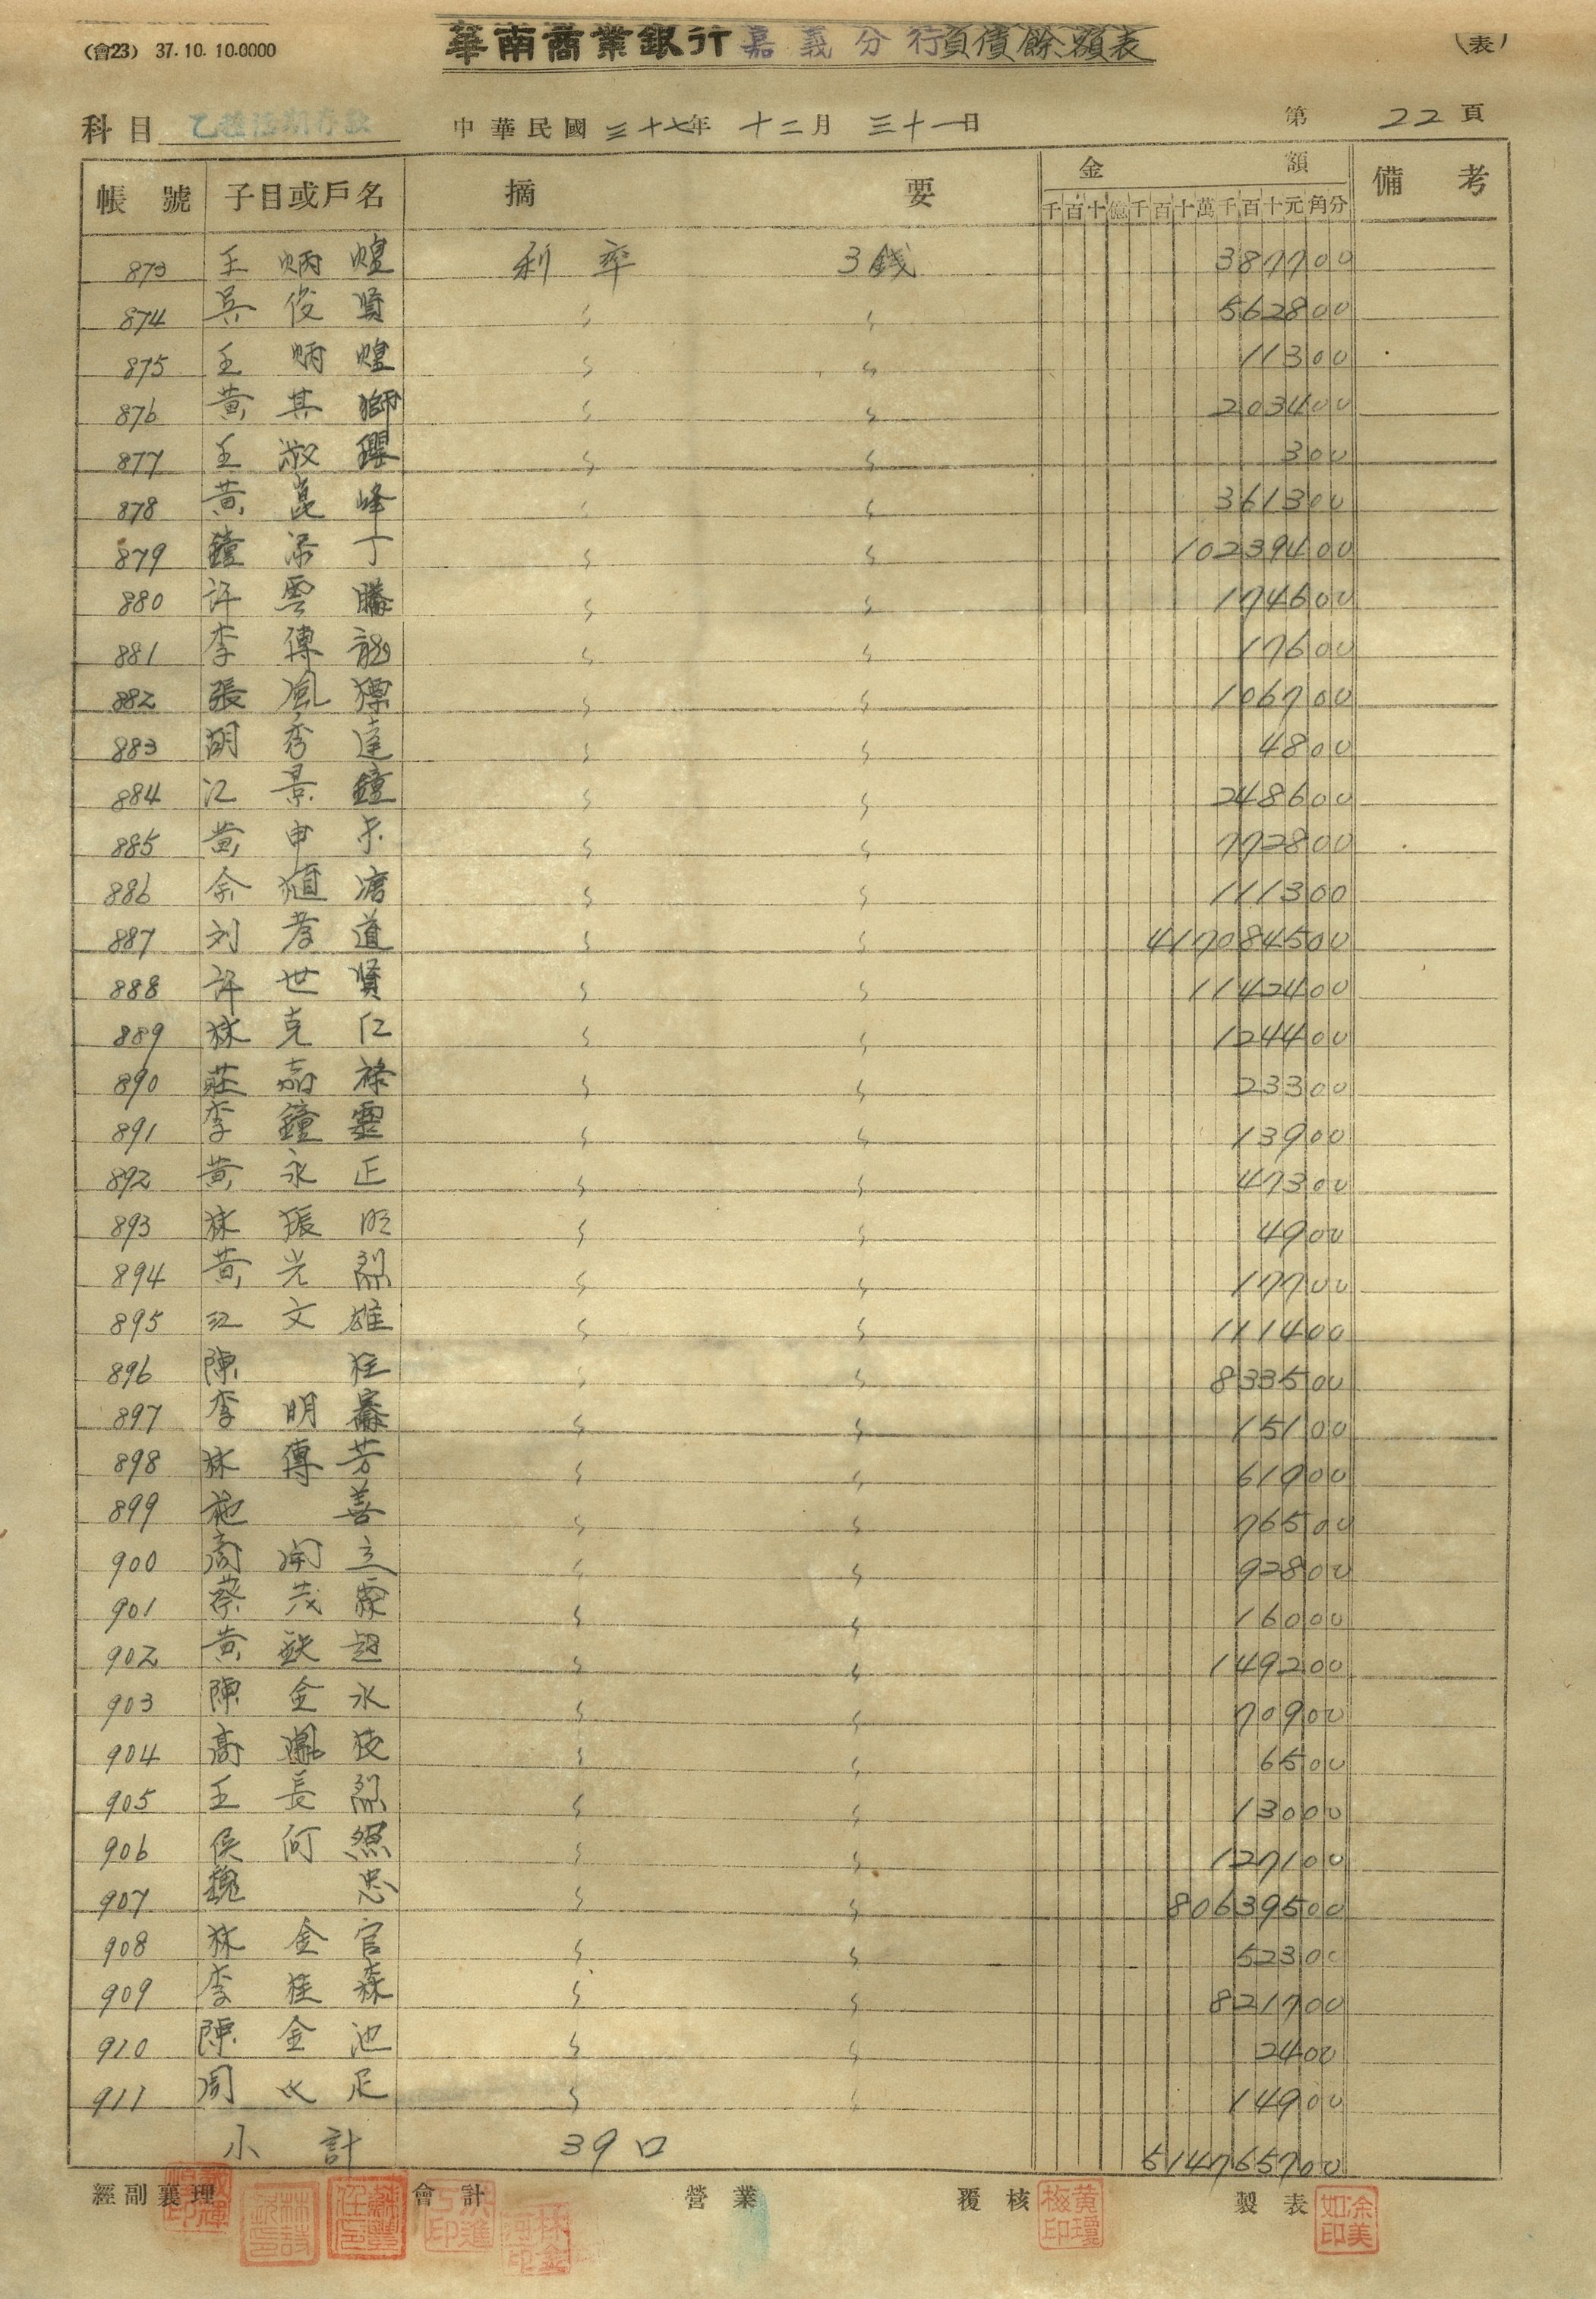 (會23) 37.10.10.0000
華南商業銀行嘉義分行負債餘額表
(表)
科目 乙種活期存款 中華民國三十七年十二月三十一日 第22頁
帳號 子目或戶名 摘要 金額 備考
千百十億千百十萬千百十元角分
873 王炳煌 利率 3錢 387700
874 吳俊賢 〃 〃 562800
875 王炳煌 〃 〃 11300
876 黃其獅 〃 〃 203400
877 王淑瓔 〃 〃 300
878 黃崑峰 〃 〃 361300
879 鐘添丁 〃 〃 10239400
880 許雲騰 〃 〃 174600
881 李傳 〃 〃 17600
882 張風標 〃 〃 106700
883 胡秀達 〃 〃 4800
884 江景鐘 〃 〃 248600
885 黃申 〃 〃 772800
886 余 〃 〃 111300
887 刘孝道 〃 〃 417084500
888 許世賢 〃 〃 1142400
889 林克仁 〃 〃 124400
890 莊嘉祿 〃 〃 23300
891 李鐘靈 〃 〃 13900
892 黃永正 〃 〃 47300
893 林振旺 〃 〃 4900
894 黃光烈 〃 〃 17700
895 江文雄 〃 〃 111400
896 陳桂 〃 〃 833500
897 李明 〃 〃 15100
898 林傳芳 〃 〃 61900
899 施善 〃 〃 76500
900 周開立 〃 〃 92800
901 蔡茂霖 〃 〃 16000
902 黃超 〃 〃 149200
903 陳金水 〃 〃 70900
904 高鳳枝 〃 〃 6500
905 王長烈 〃 〃 13000
906 侯何照 〃 〃 127100
907 魏忠 〃 〃 80639500
908 林金官 〃 〃 52300
909 李桂森 〃 〃 821700
910 陳金池 〃 〃 2400
911 周足 〃 〃 14900
小計 39口 514765700
經副襄理 會計 營業 覆核 黃瓊梅印 製表 涂美如印